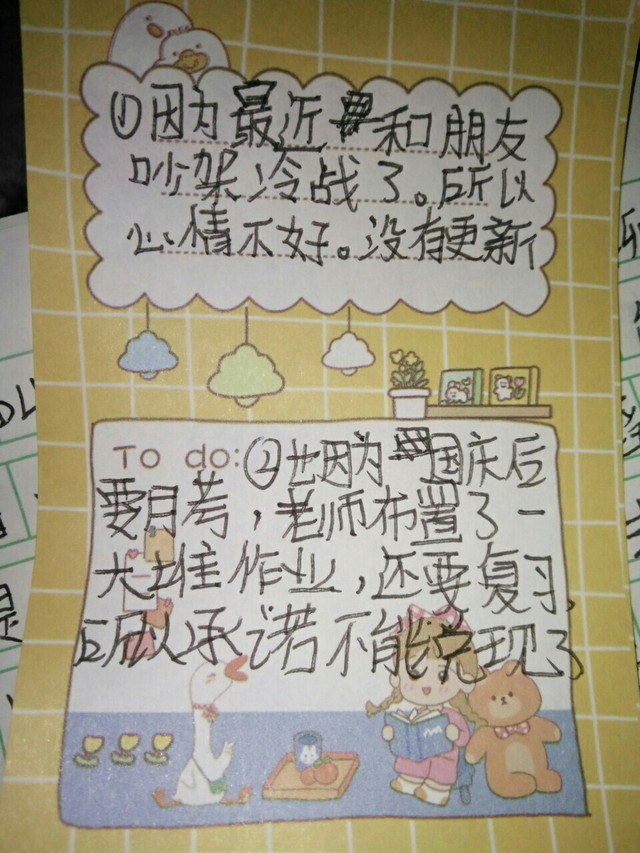 ①因为最近和朋友
吵架冷战了。所以
心情不好。没有更新
To do: ②也因为国庆后
要月考，老师布置了一
大堆作业，还要复习，
所以承诺不能兑现了